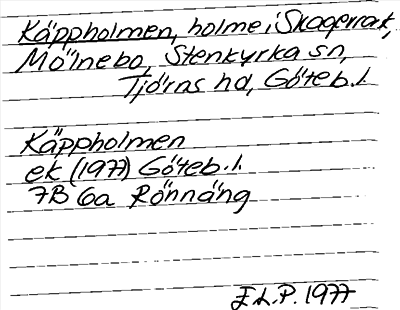 Käppholmen, holme i Skagerrak,
Mölnebo, Stenkyrka sn,
Tjörns hd, Göteb. l.
Käppholmen
ek (1977) Göteb. l.
7B 6a Rönnäng
E.L.P. 1977